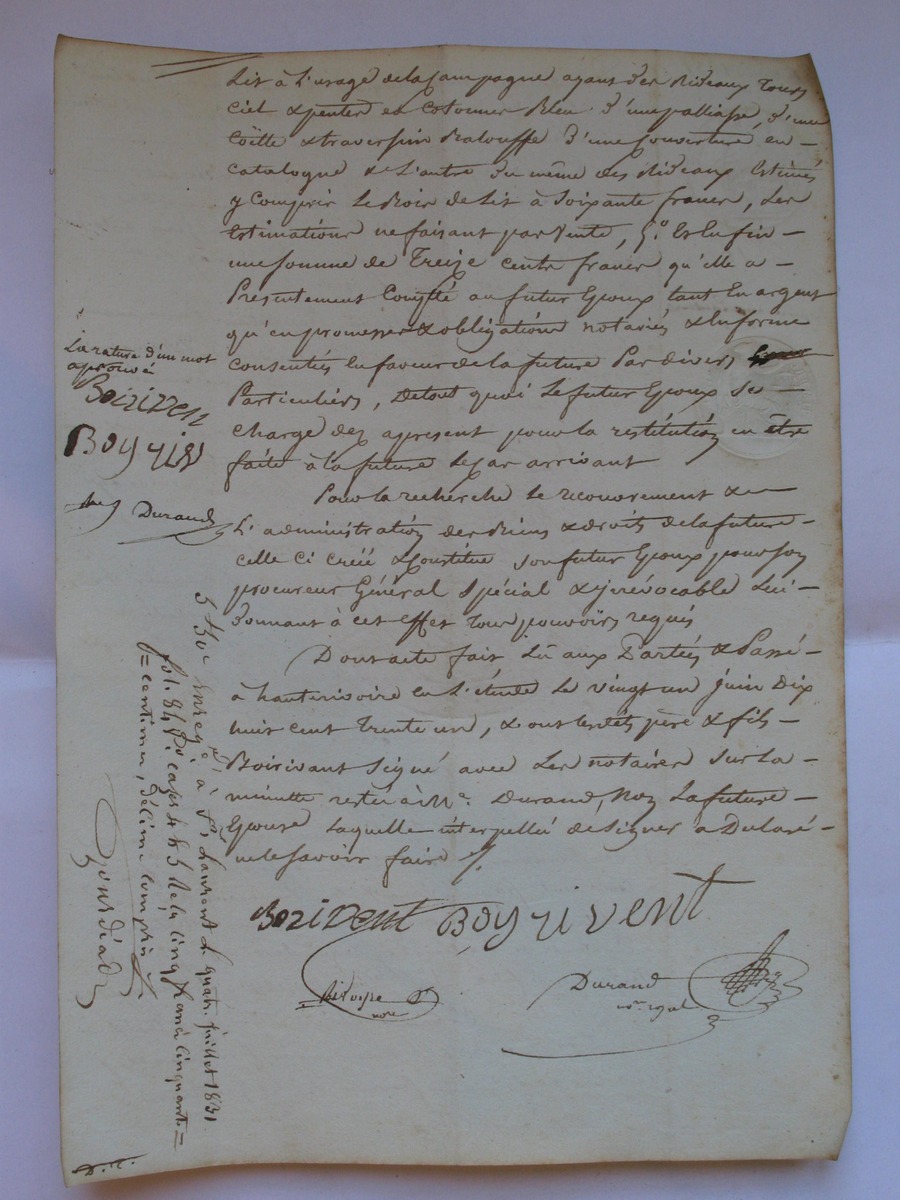 Lit à l'usage de la Campagne ayant des Rideaux tours
ciel & pentes en Cotonne Bleu d'une palliasse, d'une
Coëtte & traversin Balouffe d'une Couverture en
catalogne & L'autre du même des Rideaux Estimés
y Compris Le Bois de Lit à Soixante francs, Les
Estimations ne faisant pas Vente, 5.º Et Enfin
une Somme de Treize cents francs qu'elle a
Présentement Compté au futur Epoux tant En argent
qu'en promesses & obligations notariés & En forme
consentiés En faveur de la future Par divers
Particuliers, De tout quoi Le futur Epoux Se
Charge dez apresent pour la restitution en être
faite à la future Le Cas arrivant
Pour la recherche Le recouvrement &
L'administration des Biens & droits de la future
celle ci créé & Constitue son futur Epoux pour son
procureur Général Spécial & irrévocable Lui
Donnant à cet effet Tous pouvoirs requis
Dont acte fait Lû aux Parties & Passé
à hauterivoire En L'étude Le vingt un juin Dix
huit cent Trente un, & ont Lesdits père & fils
Boirivant Signé avec Les notaires Sur La
minutte restée à Me. Durand, Non La future
Epouse Laquelle interpellée de Signer a Déclaré
ne le Savoir faire
Boirivent Boyrivent
nore
Durand
nre. royal
La rature d'un mot
aprouvé
Boiriven
Boyriv
Durand
Enregé. à St. Laurent Le quatre juillet 1831
fol. 84 Vo. cases 4 & 5 Reçu cinq francs cinquante
centimes, décime compris